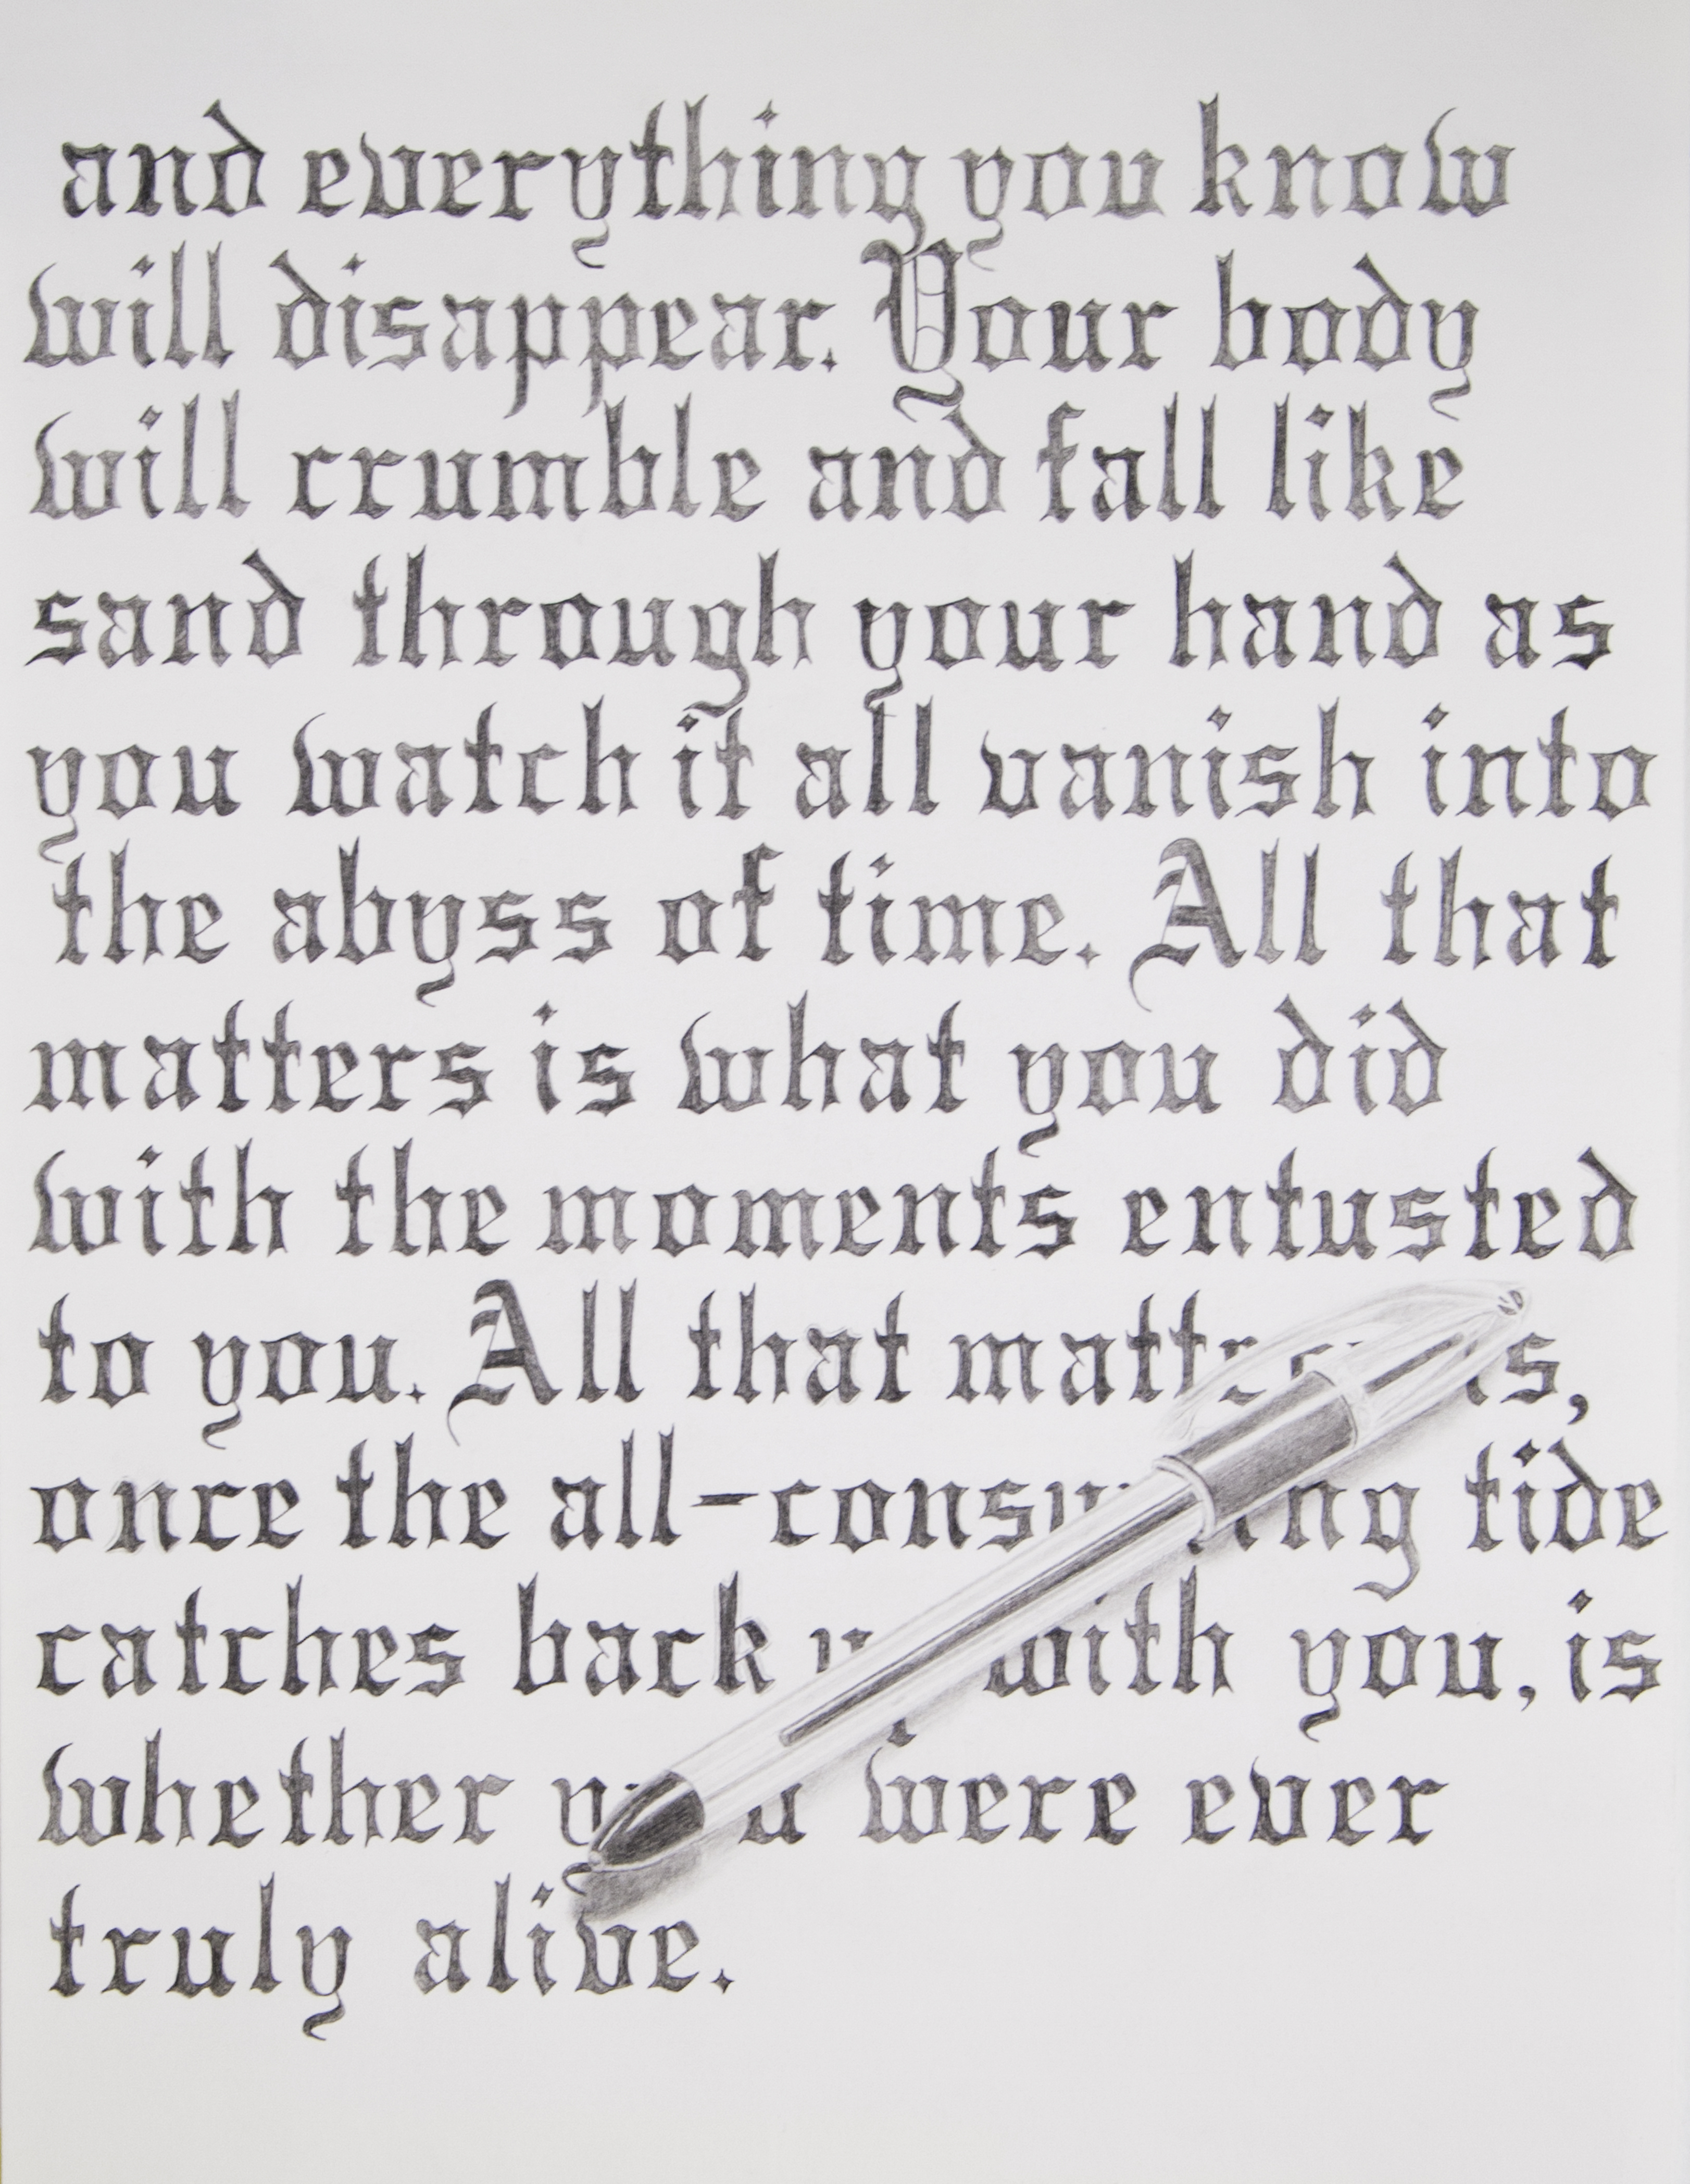 and everything you know
will disappear. Your body
will crumble and fall like
sand through your hand as
you watch it all vanish into
the abyss of time. All that
matters is what you did
with the moments entusted
to you. All that matters is,
once the all-consuming tide
catches back with you, is
whether you were ever
truly alive.